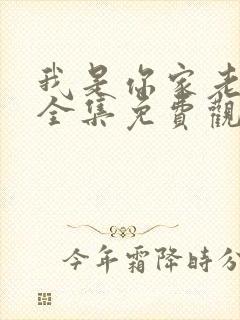 我是你家老
全集免費觀
今年霜降時分